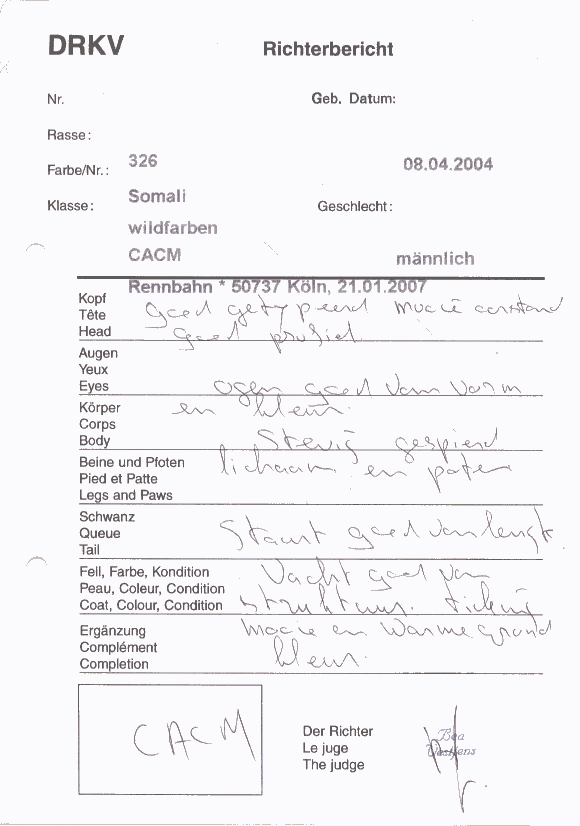 DRKV
Richterbericht
Nr.
Geb. Datum:
Rasse:
Farbe/Nr.: 326 08.04.2004
Klasse: Somali Geschlecht:
wildfarben
CACM männlich
Rennbahn * 50737 Köln, 21.01.2007
Kopf goed getypeerd mooie oorstand
Tête
Head goed profiel
Augen
Yeux
Eyes ogen goed van vorm
Körper en kleur.
Corps
Body Stevig gespierd
Beine und Pfoten lichaam en poten
Pied et Patte
Legs and Paws
Schwanz
Queue Staart goed van lengte
Tail
Fell, Farbe, Kondition Vacht goed van
Peau, Coleur, Condition
Coat, Colour, Condition struktuur. ticking
Ergänzung mooie en warme grond
Complément
Completion kleur.
CACM
Der Richter
Le juge
The judge
Bea